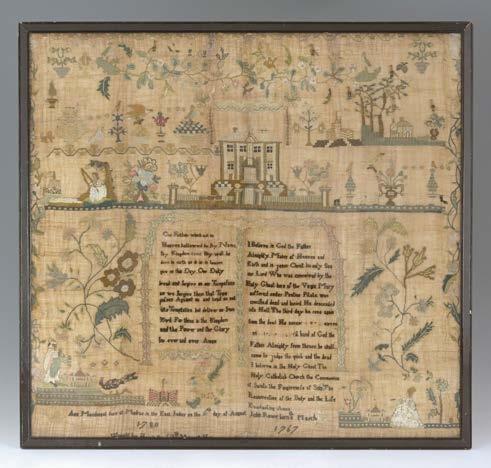 Our Father which art in
Heaven hallowed be thy Name
thy Kingdom come thy will be
done in earth as it is in heaven
give us this Day Our Daily
bread and forgive us our Trespasses
as we forgive them that Tres
passes Against us and lead us not
into Temptation but deliver us from
For thine is the Kingdom
and the Power and the Glory
for ever and ever Amen
I Believe in God the Father
Almighty Maker of Heaven and
Earth and in Jesus Christ his only Son
our Lord Who was conceived by the
Holy Ghost born of the Virgin Mary
suffered under Pontius Pilate was
crucified dead and buried He descended
into Hell The third day he rose again
from the dead He
hand of God the
Father Almighty from thence he shall
come to judge the quick and the dead
I believe in the Holy Ghost The
Holy Catholick Church the Communion
of Saints the Forgiveness of Sins The
Resurrection of the Body and the Life
Everlasting Amen
Ann born at in the East Indies on the day of August
1780
John born March
1767